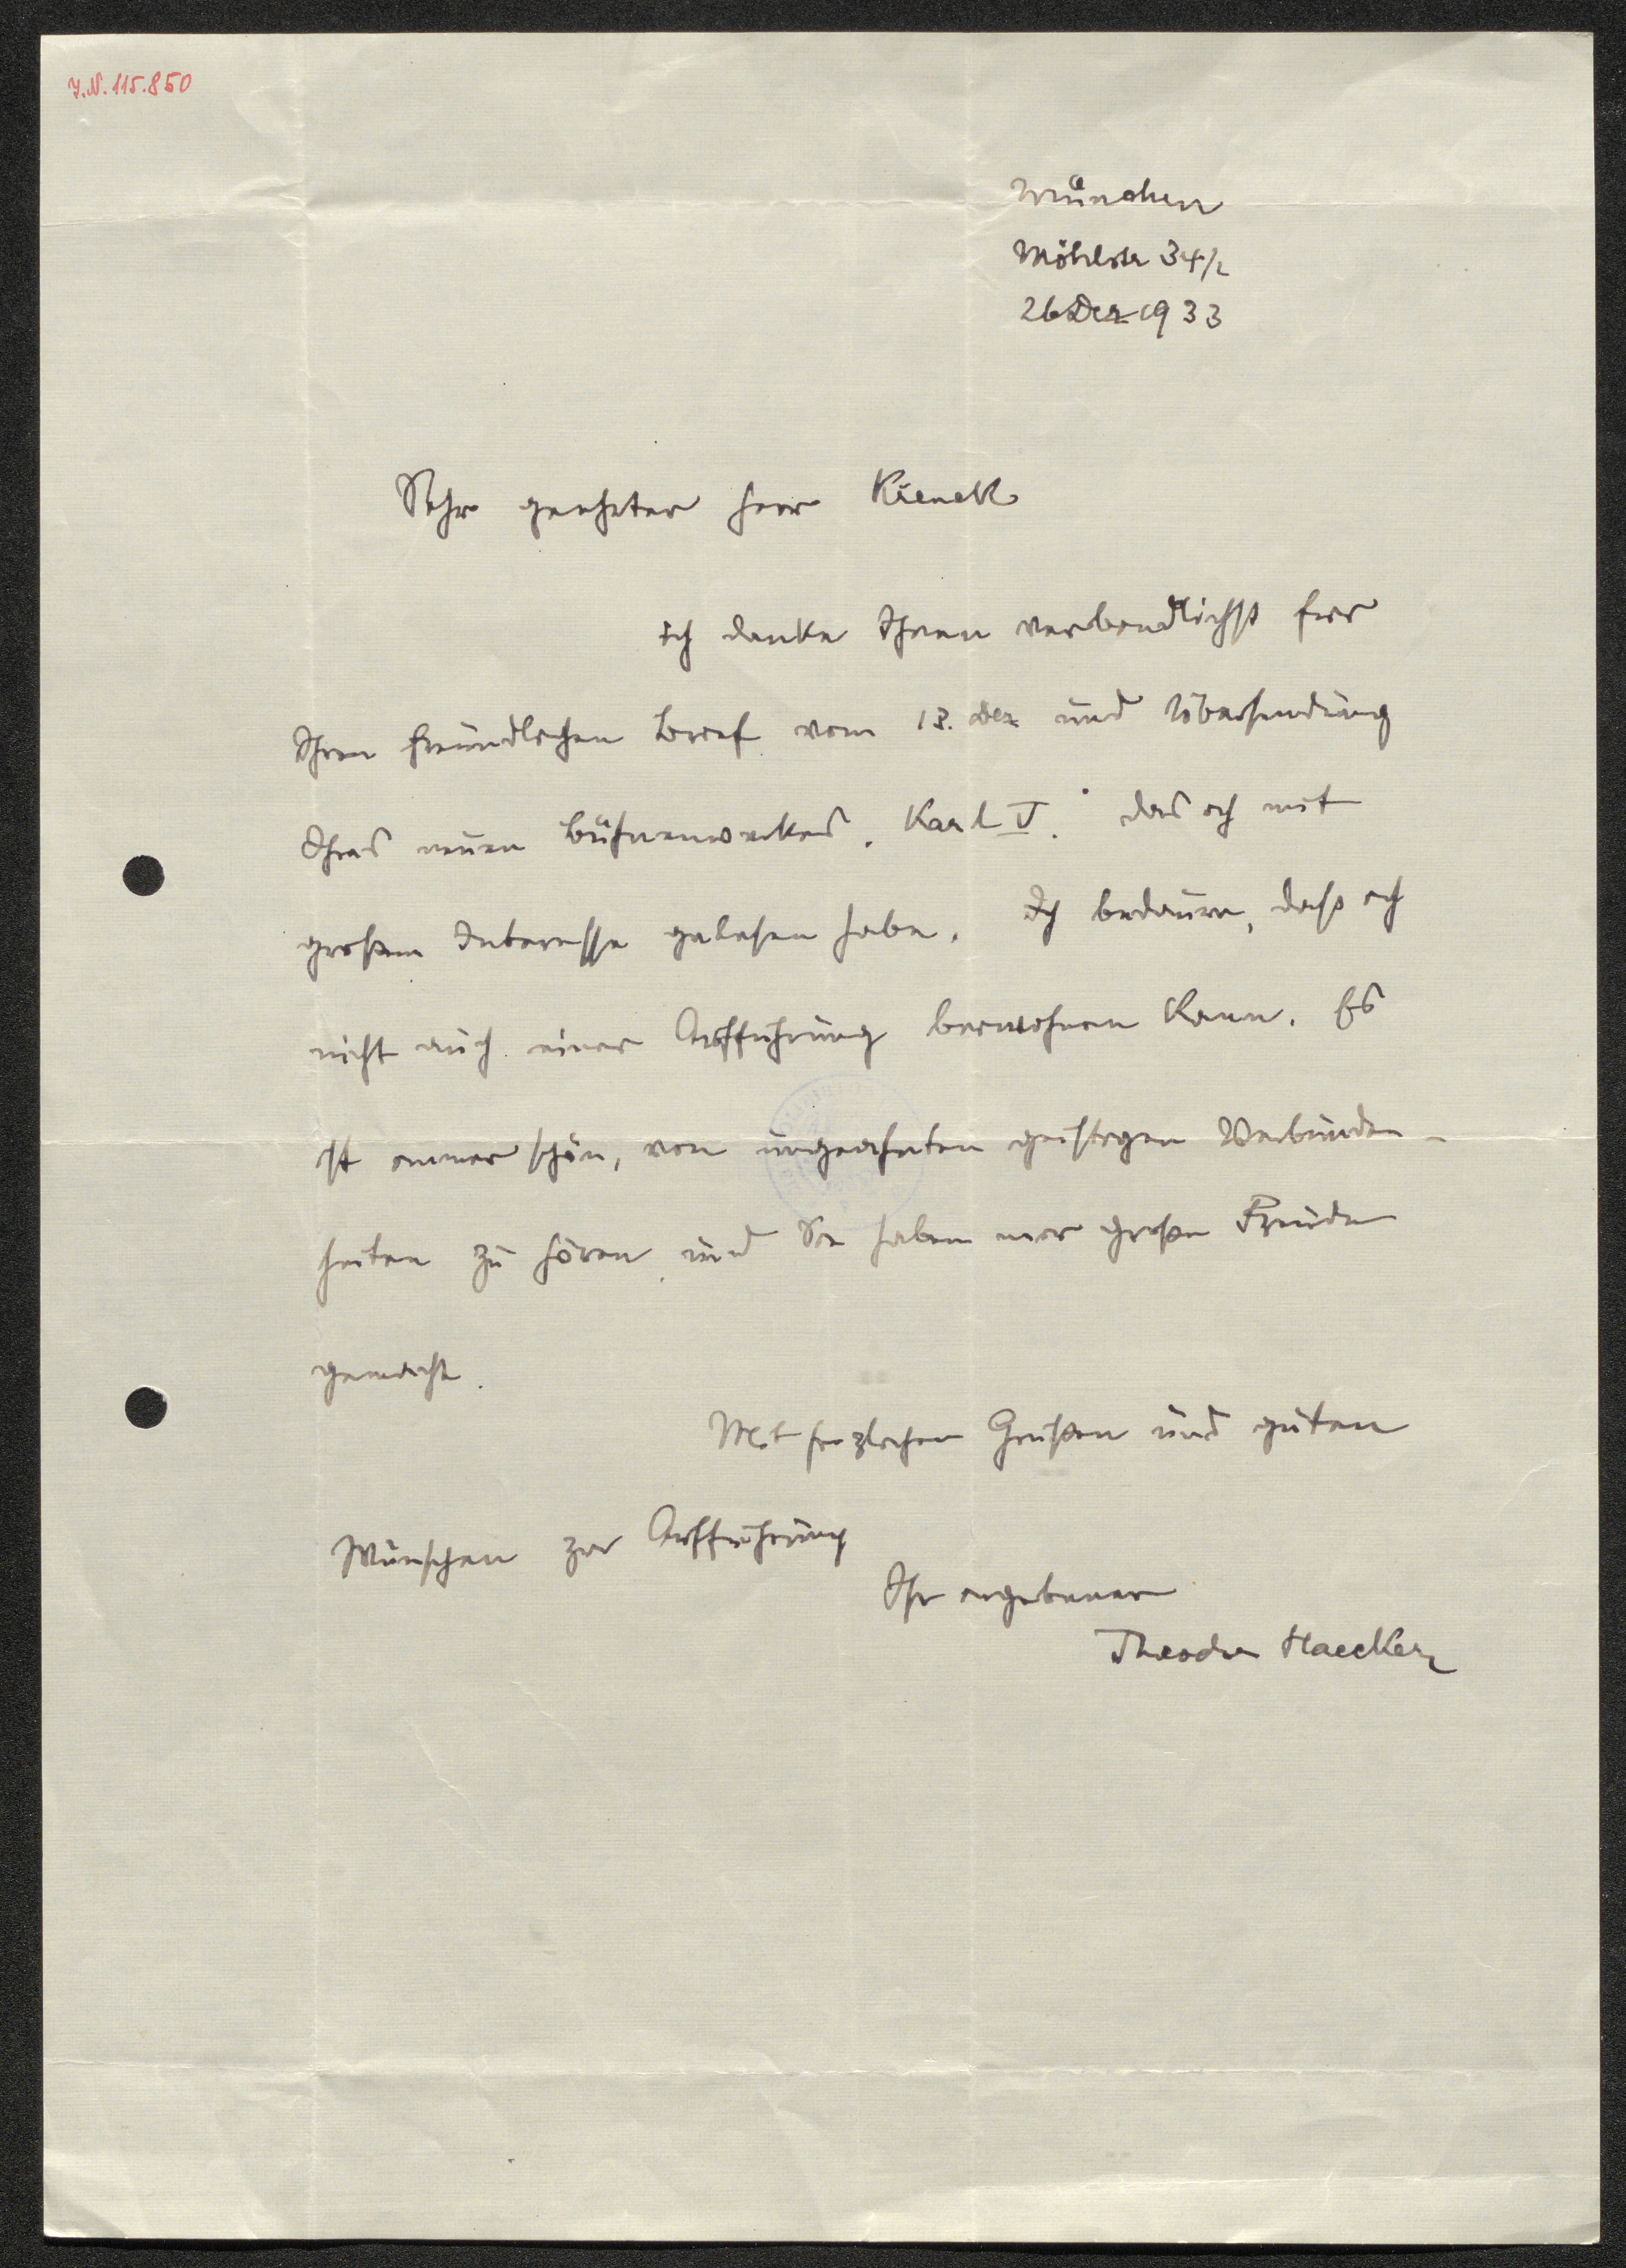 I.N. 115.850
München
Möhlstr 34/2
26 Dez 1933
Sehr geehrter Herr Krenek
ich danke Ihnen verbindlichst für
Ihren freundlichen Brief vom 13. Dez und Übersendung
Ihres neuen Bühnenwerkes „Karl V.“ das ich mit
großem Interesse gelesen habe. Ich bedaure, dass ich
nicht auch einer Aufführung beiwohnen kann. Es
ist immer schön, von ungeahnten geistigen Verbunden-
heiten zu hören und Sie haben mir große Freude
gemacht.
Mit herzlichen Grüßen und guten
Wünschen zur Aufführung
Ihr ergebener
Theodor Haecker